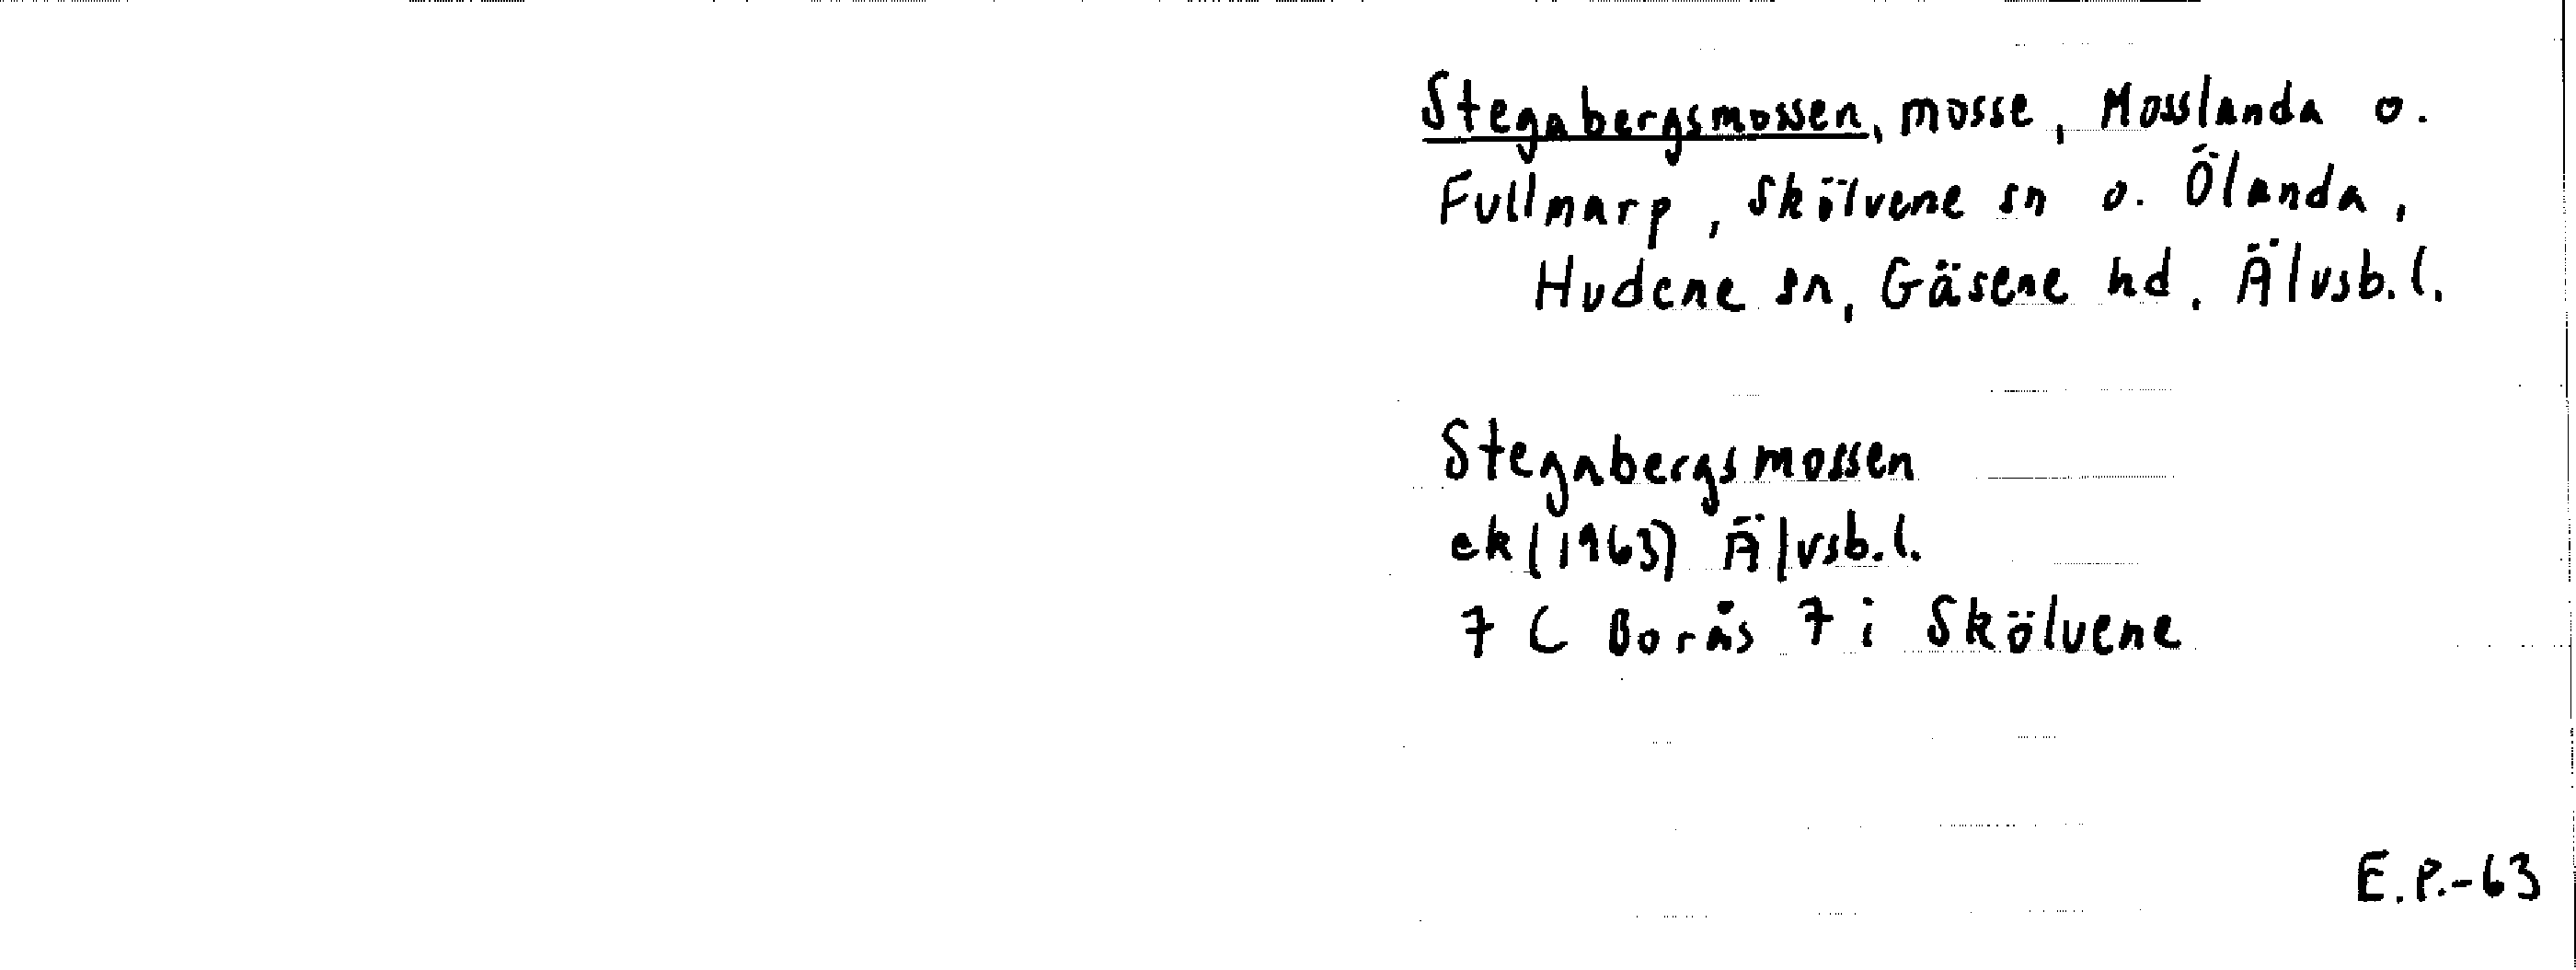 Stegabergsmossen, mosse, Mosslanda o.
Fullmarp, Skölvene sn o. Ölanda,
Hudene sn, Gäsene hd, Älvsb.l.
Stegabergsmossen
ek (1963) Älvsb.l.
7 C Borås 7 i Skölvene
E.P.-63